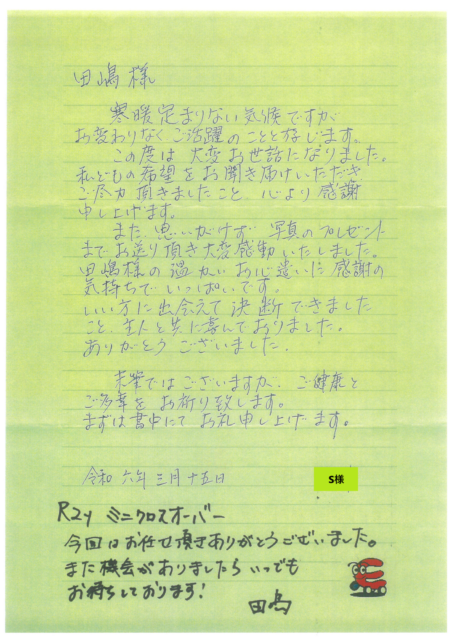 田嶋様
寒暖定まりない気候ですが
お変わりなくご活躍のことと存じます。
この度は大変お世話になりました。
私どもの希望をお聞き届けいただき
ご尽力頂きましたこと、心より感謝
申し上げます。
また、思いがけず写真のプレゼント
までお送り頂き大変感動いたしました。
田嶋様の温かいお心遣いに感謝の
気持ちでいっぱいです。
いい方に出会えて決断できました
こと、主人と共に喜んでおりました。
ありがとうございました.
末筆ではございますが、ご健康と
ご多幸をお祈り致します。
まずは書中にてお礼申し上げます。
令和六年三月十五日
S様
R2y ミニクロスオーバー
今回はお任せ頂きありがとうございました。
また機会がありましたらいつでも
お待ちしております!
田嶋